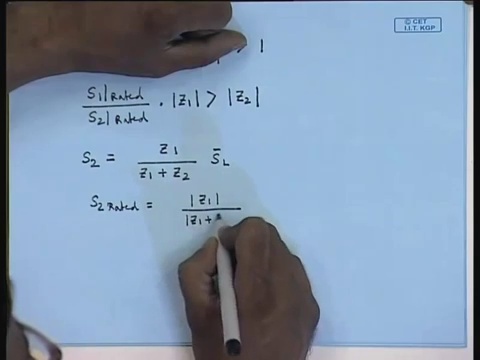 © CET
I.I.T. KGP
> 1
S₁|Rated / S₂|Rated · |Z₁| > |Z₂|
S₂ = Z₁ / (Z₁ + Z₂) S̄_L
S₂ Rated = |Z₁| / |Z₁ +